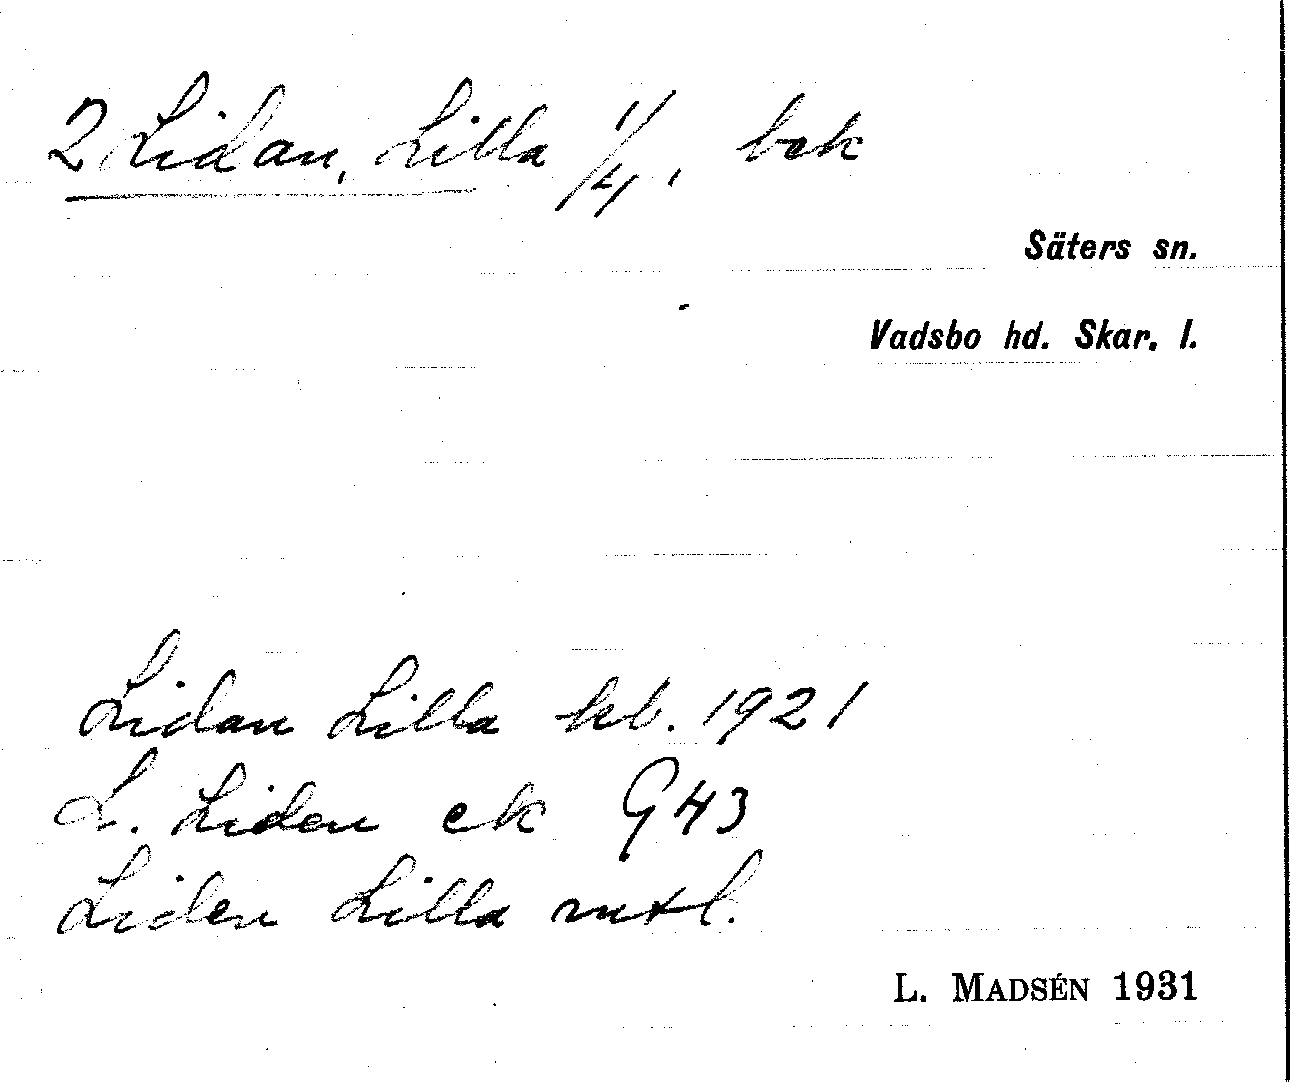 2 Lidan, Lilla 1/4, bck
Säters sn.
Vadsbo hd. Skar. l.
Lidan Lilla kb. 1921
L. Liden ek G43
Liden Lilla mtl.
L. MADSÉN 1931